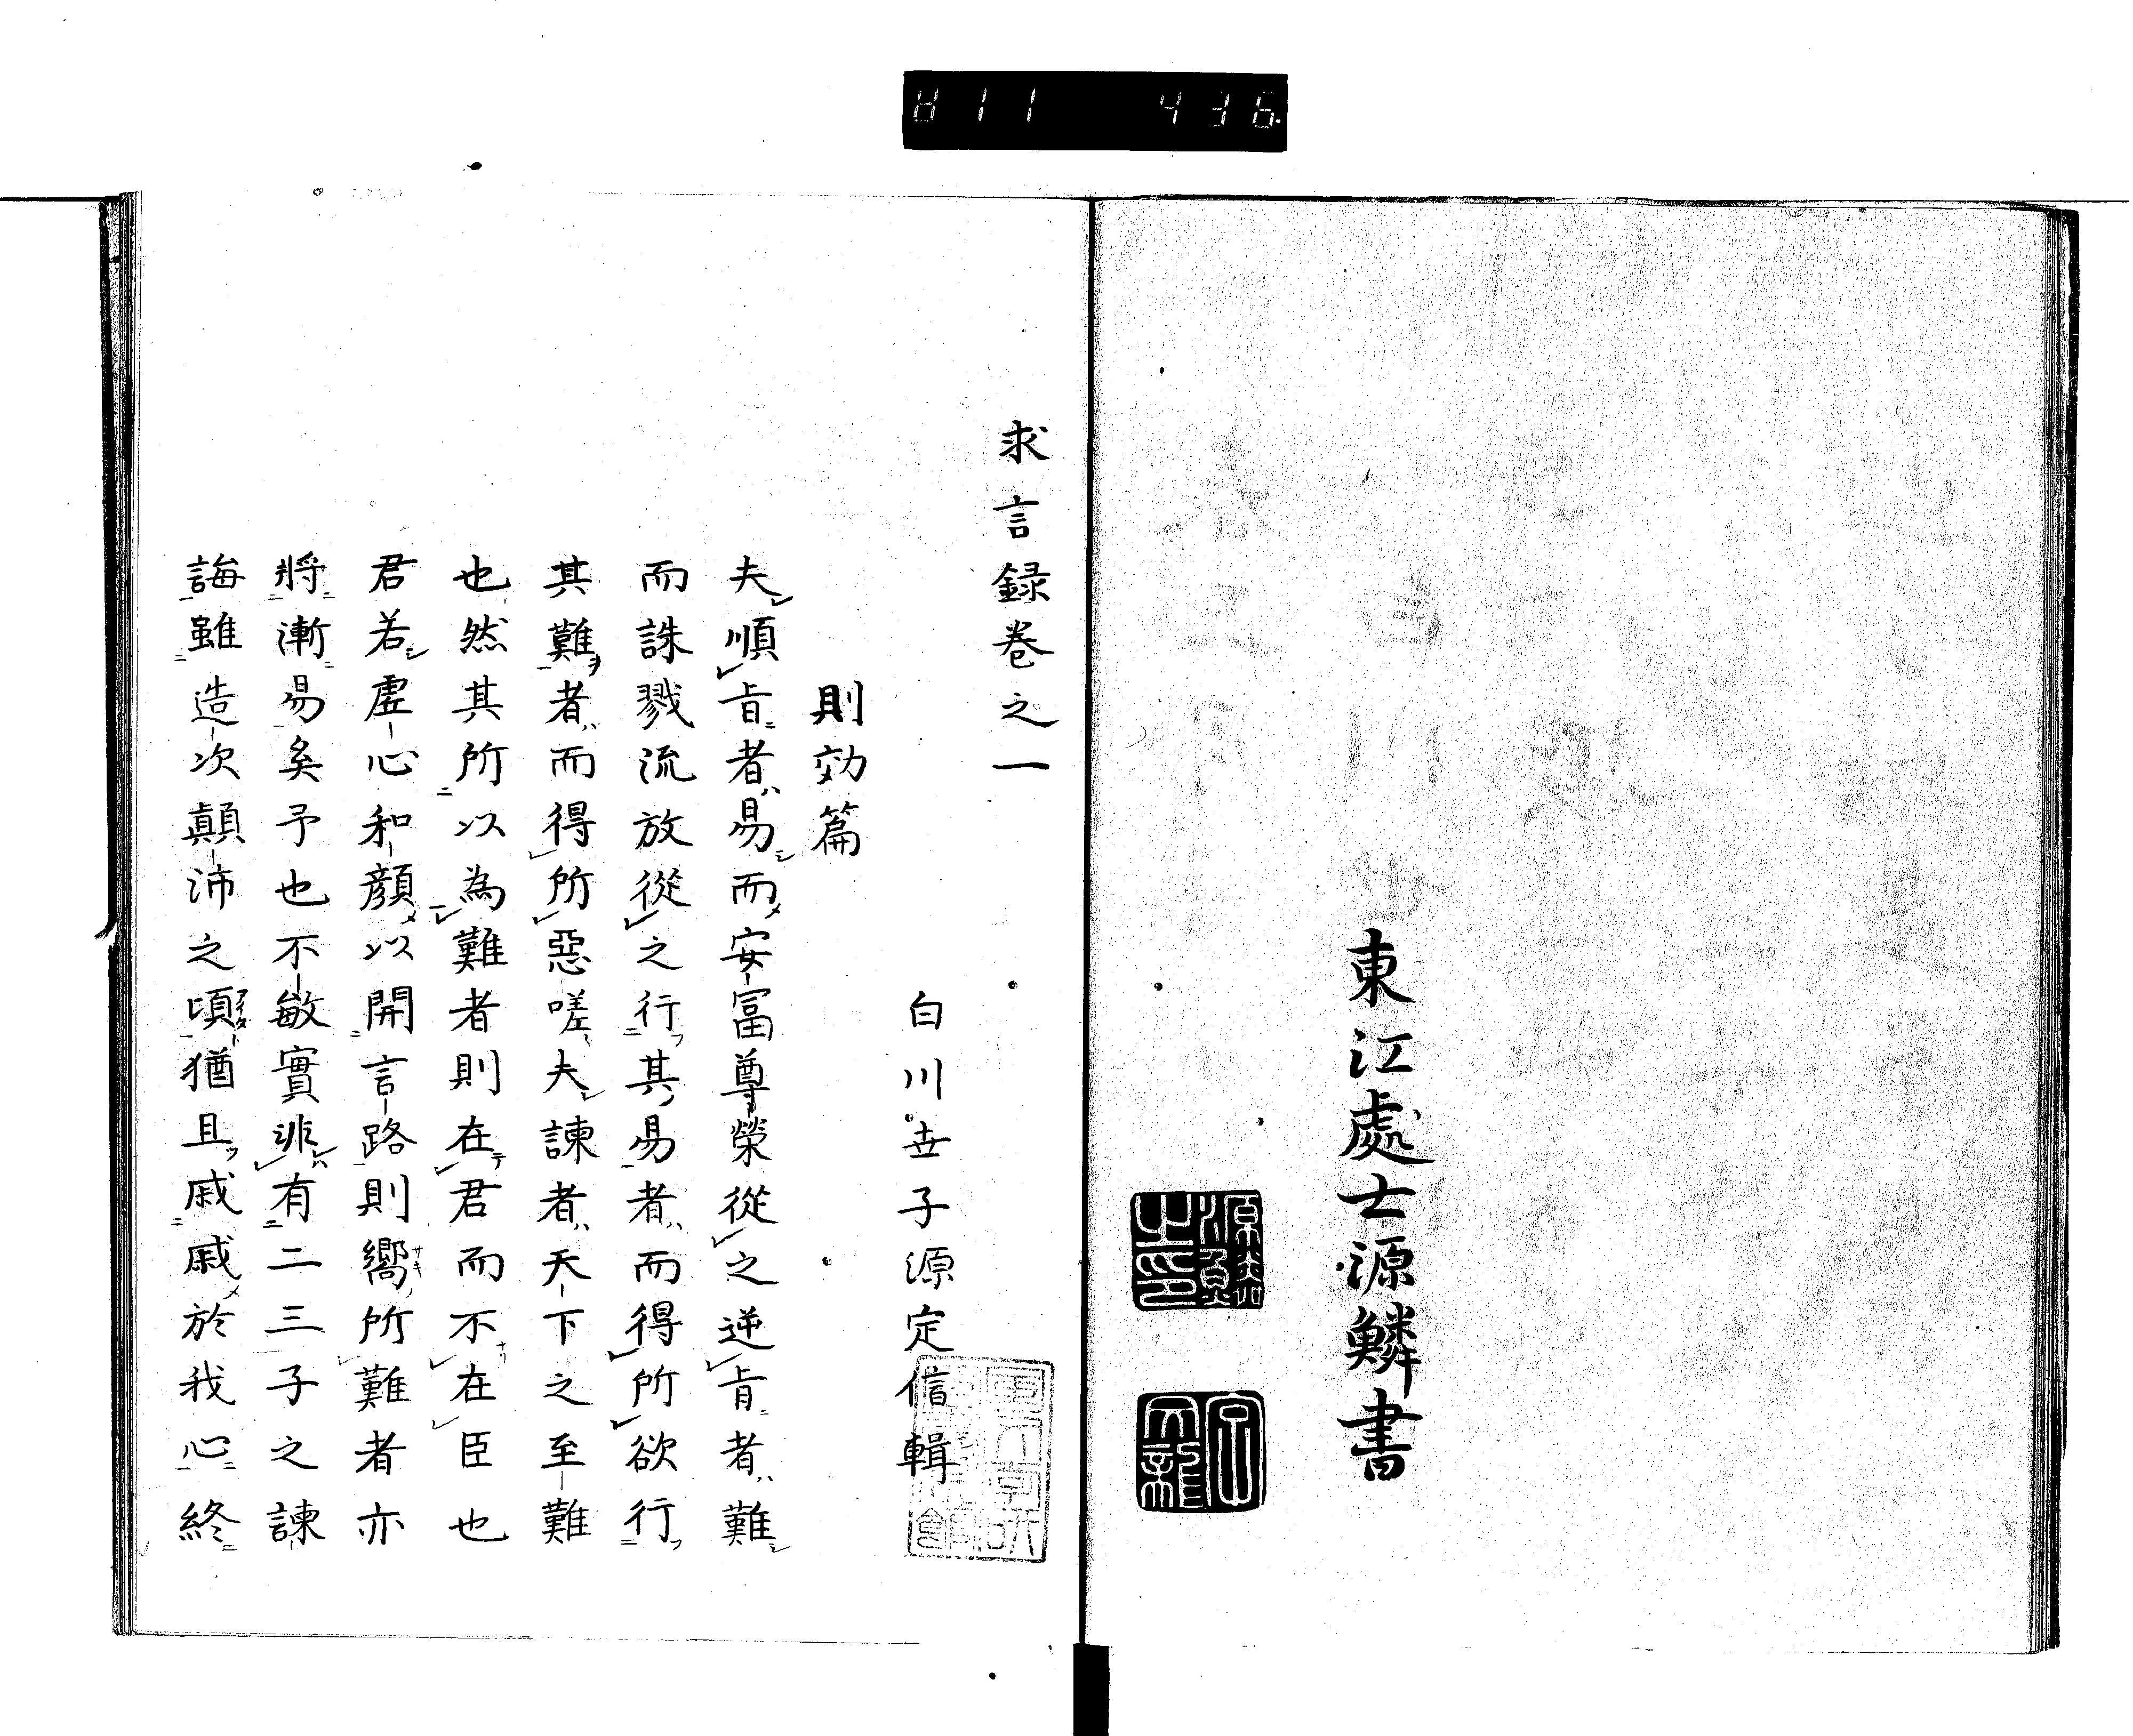 811 436
東江處士源鱗書
求言録卷之一
白川世子源定信輯
則効篇
夫順旨者易而安冨尊榮從之逆旨者難
而誅戮流放從之行其易者而得所欲行
其難者而得所惡嗟夫諫者天下之至難
也然其所以為難者則在君而不在臣也
君若虚心和顔以開言路則嚮所難者亦
將漸易矣予也不敏實非有二三子之諫
誨雖造次顛沛之頃猶且戚戚於我心終